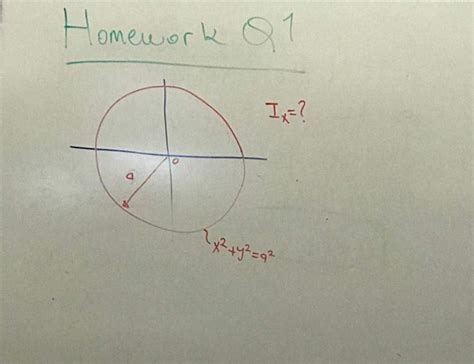 Homework Q1
Iₓ=?
o
a
x²+y²=a²